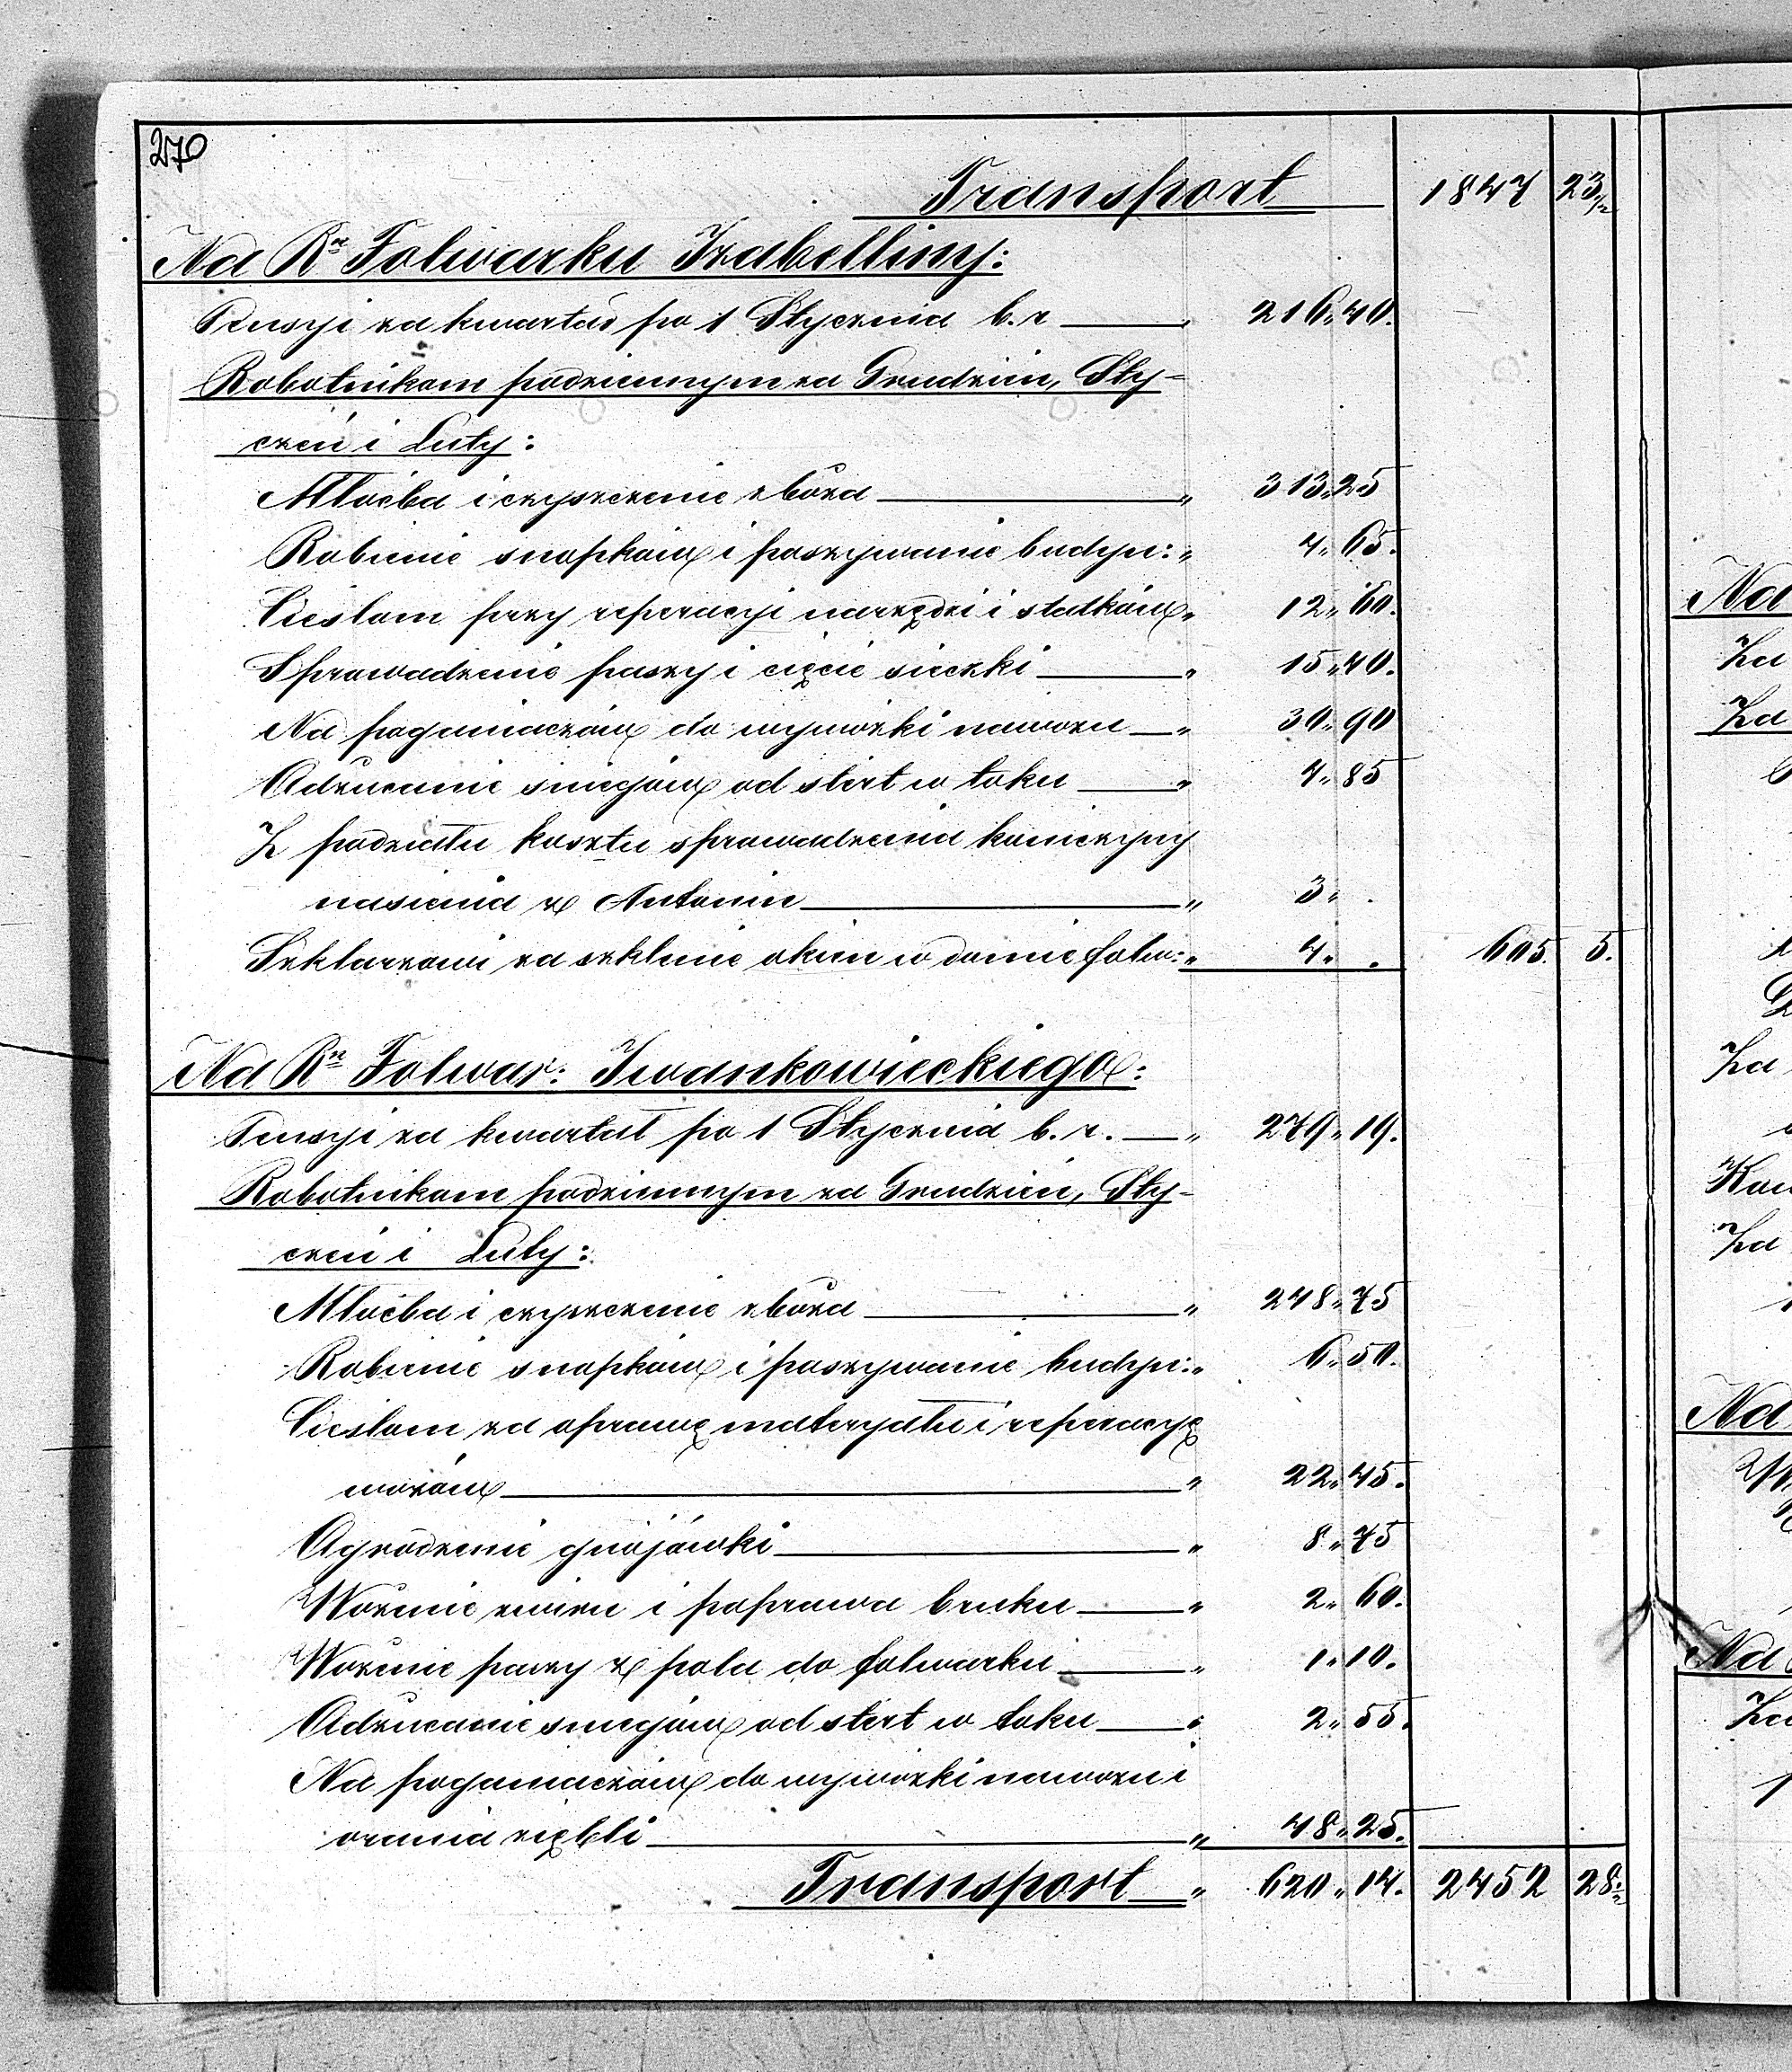 270
Transport 1847 23½
Na Rn Folwarku Izabelliny:
Pensyi za kwartał po 1 Stycznia b. r. " 216 " 40.
Robotnikom podziennym za Grudzień, Sty-
czeń i Luty:
Młoćba i czyszczenie zboża " 313 " 25
Robienie snopków i poszywanie budyn: " 4 " 65.
Cieslom przy reperacyi narzędzi i statków " 12 " 60.
Sprowadzenie paszy i cięcie sieczki " 15 " 40.
Na poganiaczów do wywózki nawozu " 30 " 90
Odrzucanie sniegów od stert w toku " 4 " 85
Z podziału kosztu sprowadzenia koniczyny
nasienia z Antonin " 3 " .
Szklarzowi za szklenie okien w domie folw: " 4 " . 605. 5.
Na Rn Folwar: Iwankowieckiego:
Pensyi za kwartał po 1 Stycznia b. r. " 279 " 19.
Robotnikom podziennym za Grudzień, Sty-
czeń i Luty:
Młoćba i czyszczenie zboża " 248 " 75
Robienie snopków i poszywanie budyn: " 6 " 50.
Cieslom za oprawę materyału i reperacyę
wozów " 22 " 45.
Ogrodzenie gnojówki " 8 " 75
Wożenie żwiru i poprawa bruku " 2 " 60.
Wożenie paszy z pola do folwarku " 1 " 10.
Odrzucanie sniegów od stert w toku " 2 " 55.
Na poganiaczów do wywózki nawozu i
orania ziębli " 48 " 25.
Transport " 620 " 14. 2452 28½